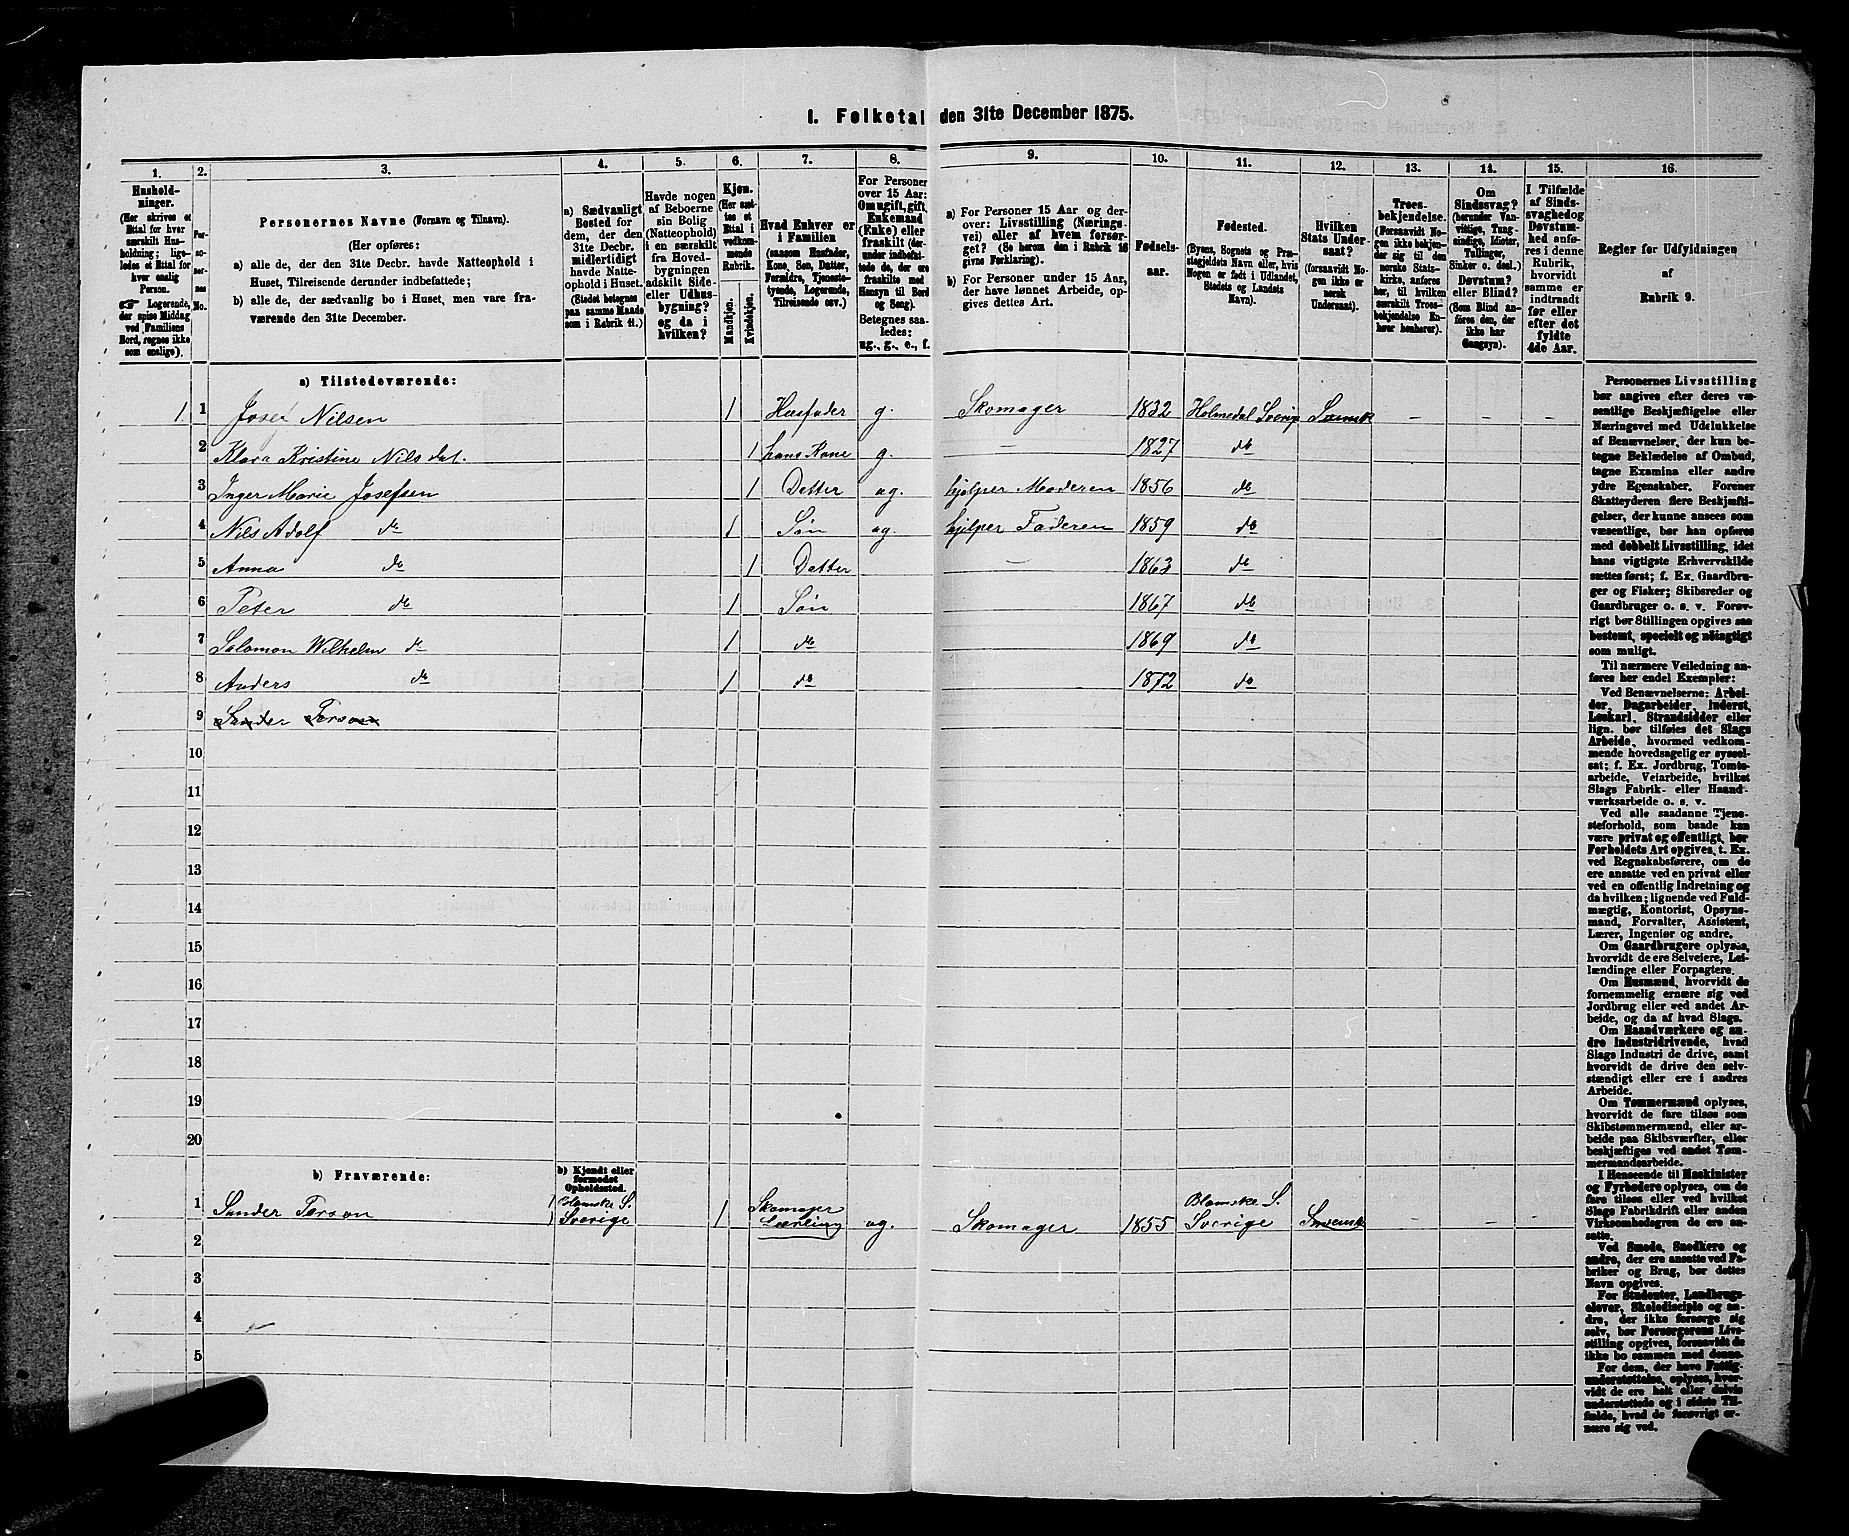 I. Folketal den 31te December 1875.
1. 2. 3. 4. 5. 6. 7. 8. 9. 10. 11. 12. 13. 14. 15. 16.
Hushold-
ninger.
(Her skrives et
Ettal for hver
særskilt Hus-
holdning; lige-
ledes et Ettal for
hver enslig
Person.
Logerende,
der spise Middag
ved Familiens
Bord, regnes ikke
som enslige).
Per-
so-
ner-
nes
No.
Personernes Navne (Fornavn og Tilnavn).
(Her opføres:
a) alle de, der den 31te Decbr. havde Natteophold i
Huset, Tilreisende derunder indbefattede;
b) alle de, der sædvanlig bo i Huset, men vare fra-
værende den 31te December.
a) Sædvanligt
Bosted for
dem, der den
31te Decbr.
midlertidigt
havde Natte-
ophold i Huset.
(Stedet betegnes
paa samme Maade
som i Rubrik 11.)
Havde nogen
af Beboerne
sin Bolig
(Natteophold)
i en særskilt
fra Hoved-
bygningen
adskilt Side-
eller Udhus-
bygning?
og da i
hvilken?
Kjøn.
(Her sæt-
tes et
Ettal i
vedkom-
mende
Rubrik.
Mandkjøn.
Kvindekjøn.
Hvad Enhver er
i Familien
(saasom Husfader,
Kone, Søn, Datter,
Forældre, Tjeneste-
tyende, Logerende,
Tilreisende osv.)
For Personer
over 15 Aar:
Om ugift, gift,
Enkemand
(Enke) eller
fraskilt (der-
under indbefat-
tede de, der ere
fraskilte med
Hensyn til Bord
og Seng).
Betegnes saa-
ledes:
ug., g., e., f.
a) For Personer 15 Aar og der-
over: Livsstilling (Nærings-
vei) eller af hvem forsør-
get? (Se herom den i Rubrik 16
givne Forklaring).
b) For Personer under 15 Aar,
der have lønnet Arbeide, op-
gives dettes Art.
Fødsels-
aar.
Fødested.
(Byens, Sognets og Præ-
stegjeldets Navn eller, hvis
Nogen er født i Udlandet,
Stedets og Landets
Navn).
Hvilken
Stats Under-
saat?
(forsaavidt No-
gen ikke er
norsk
Undersaat).
Troes-
bekjendelse.
(Forsaavidt No-
gen ikke bekjen-
der sig til den
norske Stats-
kirke, anføres
her, til hvilken
særskilt Troes-
bekjendelse En-
hver henhører).
Om
Sindssvag?
(herunder Van-
vittige, Tung-
sindige, Idioter,
Tullinger,
Sinker o. desl.)
Døvstum?
eller Blind?
(Som Blind an-
føres den, der
ikke har
Gangsyn).
I Tilfælde
af Sinds-
svaghed og
Døvstum-
hed anfø-
res i denne
Rubrik,
hvorvidt
samme er
indtraadt
før eller
efter det
fyldte
4de Aar.
Regler for Udfyldningen
af
Rubrik 9.
a) Tilstedeværende:
1 1 Josef Nilsen 1 Husfader g. Skomager 1832 Holmedal Sverig Svensk – – –
2 Klara Kristine Nilsdat. 1 hans Kone g. – 1827 do
3 Inger Marie Josefsen 1 Datter ug. hjelper Moderen 1856 do
4 Nils Adolf do 1 Søn ug. hjelper Faderen 1859 do
5 Anna do 1 Datter – 1863 do
6 Peter do 1 Søn 1867 do
7 Salomon Wilhelm do 1 do 1869 do
8 Anders do 1 do 1872 do
9 Sander Terson
10
11
12
13
14
15
16
17
18
19
20
b) Fraværende:
b) Kjendt eller
formodet
Opholdssted.
1 Sander Terson Blomske S. Sverige 1 Skomager Lærling ug. Skomager 1855 Blomske S. Sverige Svensk – – –
2
3
4
5
Personernes Livsstilling
bør angives efter deres væ-
sentlige Beskjæftigelse eller
Næringsvei med Udelukkelse
af Benævnelser, der kun be-
tegne Beklædelse af Ombud,
tagne Examina eller andre
ydre Egenskaber. Forener
Skatteyderen flere Beskjæfti-
gelser, der kunne ansees som
væsentlige, bør han opføres
med dobbelt Livsstilling, idet
hans vigtigste Erhvervskilde
sættes først; f. Ex. Gaardbru-
ger og Fisker; Skibsreder og
Gaardbruger o. s. v. Forøv-
rigt bør Stillingen opgives saa
bestemt, specielt og nøiagtigt
som muligt.
Til nærmere Veiledning an-
føres her endel Exempler:
Ved Benævnelserne: Arbei-
der, Dagarbeider, Inderst,
Løskarl, Strandsidder eller
lign. bør tilføies det Slags
Arbeide, hvormed vedkom-
mende hovedsagelig er syssel-
sat; f. Ex. Jordbrug, Tomte-
arbeide, Veiarbeide, hvilket
Slags Fabrik- eller Haand-
værksarbeide o. s. v.
Ved alle saadanne Tjene-
steforhold, som baade kan
være privat og offentligt, bør
Forholdets Art opgives, t. Ex.
ved Regnskabsførere, om de
ere ansatte ved en privat eller
ved en offentlig Indretning og
da hvilken; lignende ved Fuld-
mægtig, Kontorist, Opsyns-
mand, Forvalter, Assistent,
Lærer, Ingeniør og andre.
Om Gaardbrugere oplyses,
hvorvidt de ere Selveiere, Lei-
lændinge eller Forpagtere.
Om Husmænd, hvorvidt de
fornemmelig ernære sig ved
Jordbrug eller ved andet Ar-
beide, og da af hvad Slags.
Om Haandværkere og an-
dre industridrivende, hvad
Slags Industri de drive, samt
hvorvidt de drive den selv-
stændigt eller ere i andres
Arbeide.
Om Tømmermænd oplyses,
hvorvidt de fare tilsøs som
Skibstømmermænd, eller ar-
beide paa Skibsværfter, eller
beskjæftiges ved andet Tøm-
mermandsarbeide.
I Henseende til Maskinister
og Fyrbødere oplyses, om de
fare tilsøs eller ved hvilket
Slags Fabrikdrift eller anden
Virksomhedsgren de ere an-
satte.
Ved Smede, Snedkere og
andre, der ere ansatte ved Fa-
briker og Brug, bør dettes
Navn opgives.
For Studenter, Landbrugs-
elever, Skoledisciple og an-
dre, der ikke forsørge sig
selv, bør Forsørgerens Livs-
stilling opgives, forsaavidt de
ikke bo sammen med denne.
For dem, der have Fattig-
understøttelse, oplyses, hvor-
vidt de ere helt eller delvis
understøttede og i sidste Til-
fælde, hvad de forøvrigt er-
nære sig ved.